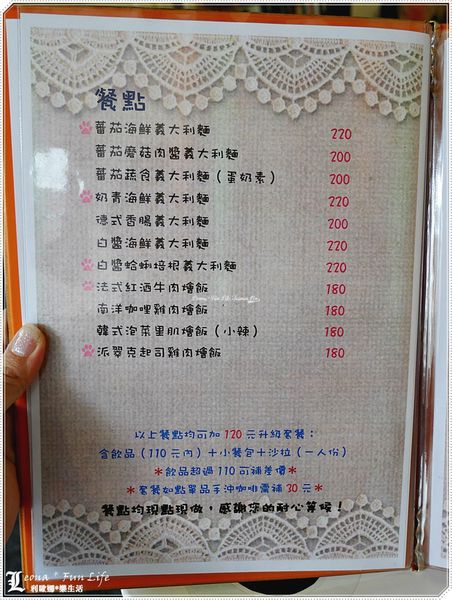 餐點
蕃茄海鮮義大利麵 220
蕃茄蘑菇肉醬義大利麵 200
蕃茄蔬食義大利麵（蛋奶素） 200
奶青海鮮義大利麵 220
德式香腸義大利麵 200
白醬海鮮義大利麵 220
白醬蛤蜊培根義大利麵 220
法式紅酒牛肉燴飯 180
南洋咖哩雞肉燴飯 180
韓式泡菜里肌燴飯（小辣） 180
派翠克起司雞肉燴飯 180
以上餐點均可加 120 元升級套餐：
含飲品（110 元內）＋小餐包＋沙拉（一人份）
＊飲品超過 110 可補差價＊
＊套餐如點單品手沖咖啡需補 30 元＊
餐點均現點現做，感謝您的耐心等候！
Leona * Fun Life
利歐娜*樂生活